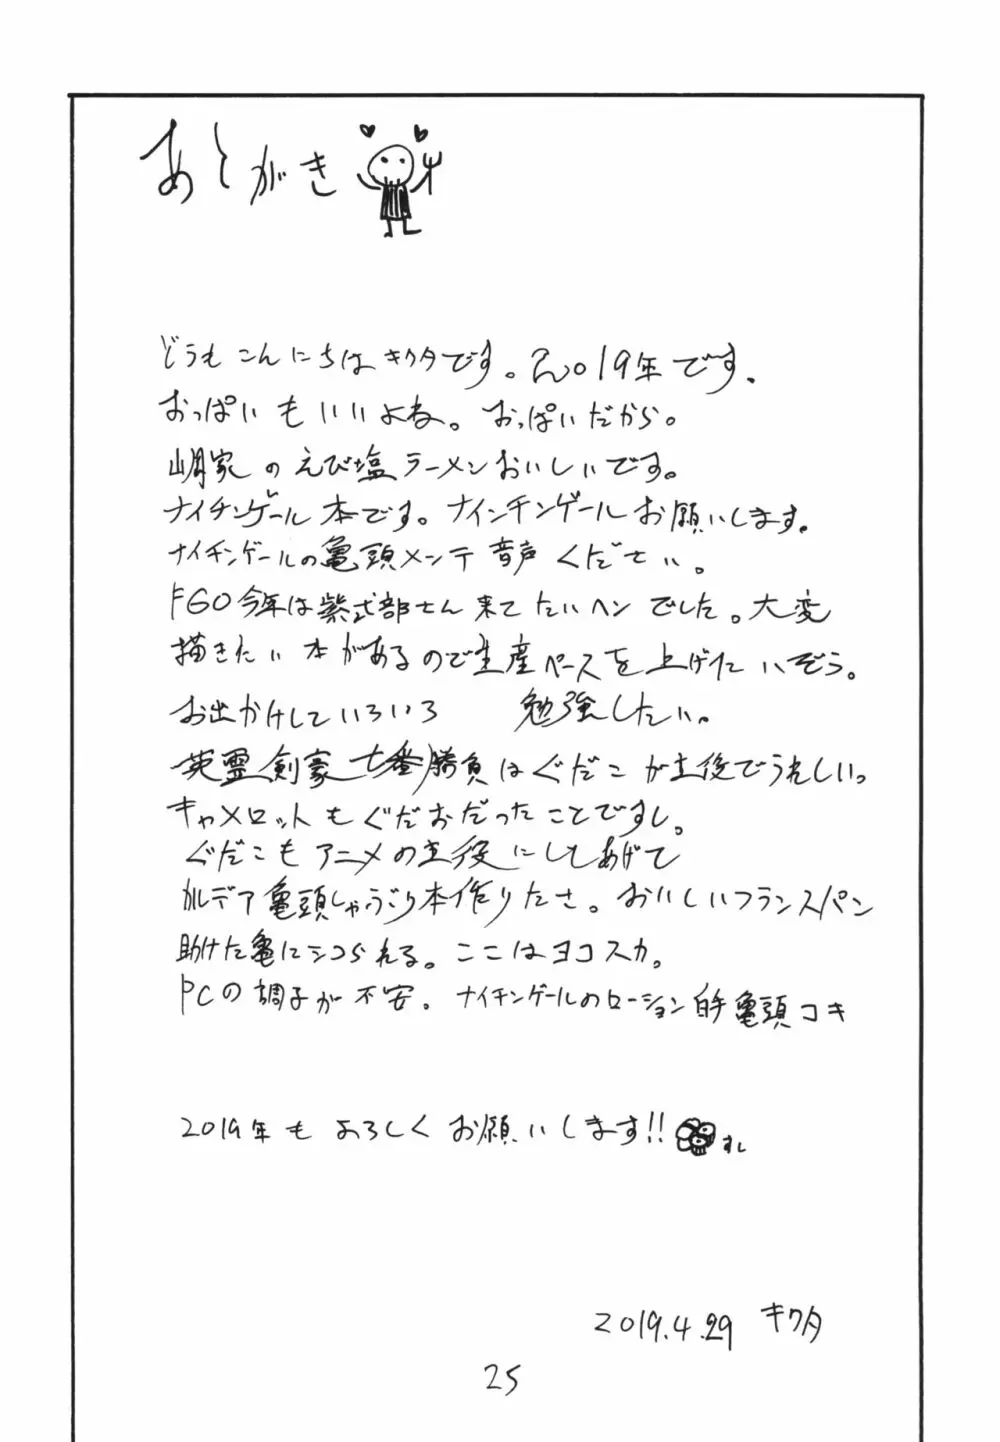 あとがき
どうもこんにちはキクタです。2019年です。
おっぱいもいいよね。おっぱいだから。
家のえび塩ラーメンおいしいです。
ナイチンゲール本です。ナインチンゲールお願いします。
ナイチンゲールの亀頭メンテ音声ください。
FGO今年は紫式部さん来てたいヘンでした。大変
描きたい本があるので生産ペースを上げたいぞう。
お出かけしていろいろ 勉強したい。
英霊剣豪七番勝負はぐだこが主役でうれしい。
キャメロットもぐだおだったことですし。
ぐだこもアニメの主役にしてあげて
カルデア亀頭しゃぶり本作りたさ。おいしいフランスパン
助けた亀にシコられる。ここはヨコスカ。
PCの調子が不安。ナイチンゲールのローション亀頭コキ
2019年もよろしくお願いします!!
すし
2019.4.29 キクタ
25